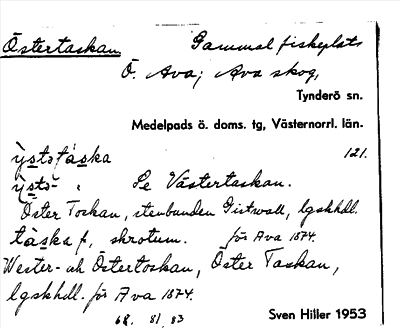 Östertaskan Gammal fiskeplats
Ö. Ava; Ava skog,
Tynderö sn.
Medelpads ö. doms. tg, Västernorrl. län.
ỳstə̣tàska 121.
ỳstə- . Se Västertaskan.
Öster Toskan, stenbunden Fistwall, lgskhdl.
tàska f, skrotum. för Ava 1874.
Wester- och Östertoskan, Öster Taskan,
lgskhdl. för Ava 1874.
68. 81, 83 Sven Hiller 1953